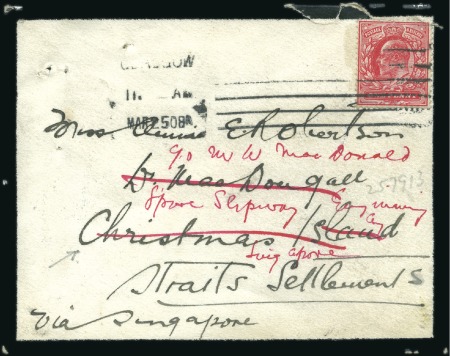 GLASGOW
11 AM
MAR 25 08
Miss Annie E Robertson
c/o Mr W MacDonald
Dr MacDougall
Spore Slipway Company
Christmas Island
Singapore
Straits Settlements
Via Singapore